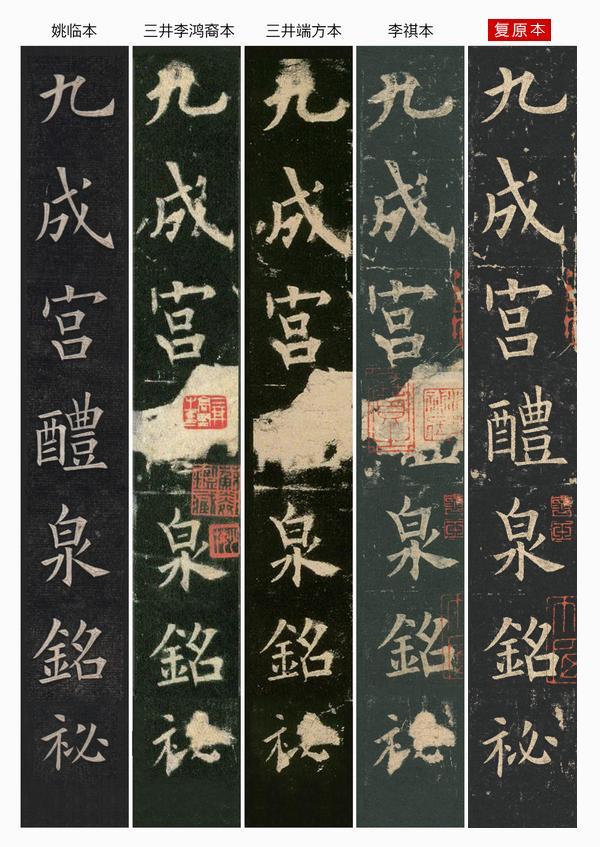 姚临本
三井李鸿裔本
三井端方本
李祺本
复原本
九成宮醴泉銘祕
九成宮泉銘祕
九成宮泉銘祕
九成宮泉銘祕
九成宮醴泉銘祕